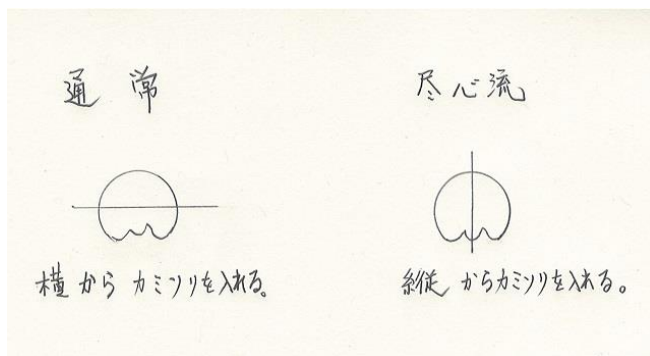 通常
尽心流
横からカミソリを入れる。
縦からカミソリを入れる。